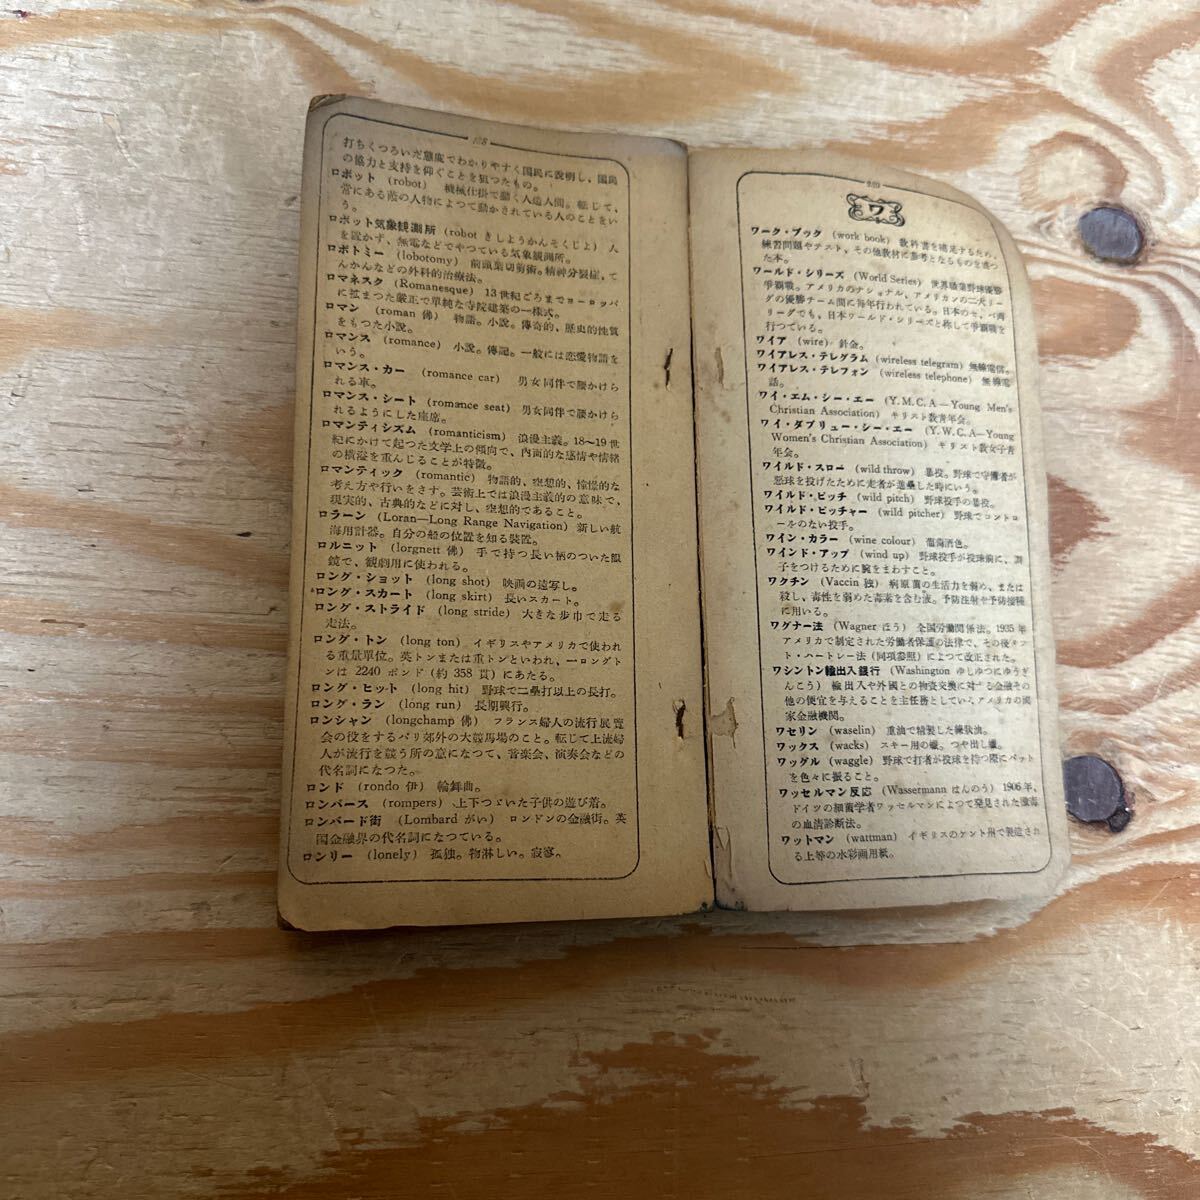 打ちくつろいだ態度でわかりやすく国民に説明し、国民
の協力と支持を仰ぐことを狙つたもの。
ロボット (robot) 機械仕掛で動く人造人間。転じて、
常にある蔭の人物によつて動かされている人のことをい
う。
ロボット気象観測所 (robot きしようかんそくじよ) 人
を置かず、無電などでやつている気象観測所。
ロボトミー (lobotomy) 前頭葉切剪術。精神分裂症、て
んかんなどの外科的治療法。
ロマネスク (Romanesque) 13世紀ごろまでヨーロッパ
に拡まつた厳正で単純な寺院建築の一様式。
ロマン (roman 佛) 物語。小説。傳奇的、歴史的性質
をもつた小説。
ロマンス (romance) 小説。傳記。一般には恋愛物語を
いう。
ロマンス・カー (romance car) 男女同伴で腰かけら
れる車。
ロマンス・シート (romance seat) 男女同伴で腰かけら
れるようにした座席。
ロマンティシズム (romanticism) 浪漫主義。18〜19世
紀にかけて起つた文学上の傾向で、内面的な感情や情緒
の横溢を重んじることが特徴。
ロマンティック (romantic) 物語的、空想的、憧憬的な
考え方や行いをさす。芸術上では浪漫主義的の意味で、
現実的、古典的などに対し、空想的であること。
ロラーン (Loran—Long Range Navigation) 新しい航
海用計器。自分の船の位置を知る装置。
ロルニット (lorgnett 佛) 手で持つ長い柄のついた眼
鏡で、観劇用に使われる。
ロング・ショット (long shot) 映画の遠写し。
ロング・スカート (long skirt) 長いスカート。
ロング・ストライド (long stride) 大きな歩巾で走る
走法。
ロング・トン (long ton) イギリスやアメリカで使われ
る重量単位。英トンまたは重トンといわれ、一ロングト
ンは 2240 ポンド (約 358 貫) にあたる。
ロング・ヒット (long hit) 野球で二塁打以上の長打。
ロング・ラン (long run) 長期興行。
ロンシャン (longchamp 佛) フランス婦人の流行展覧
会の役をするパリ郊外の大競馬場のこと。転じて上流婦
人が流行を競う所の意になつて、音楽会、演奏会などの
代名詞になつた。
ロンド (rondo 伊) 輪舞曲。
ロンパース (rompers) 上下つゞいた子供の遊び着。
ロンバード街 (Lombard がい) ロンドンの金融街。英
国金融界の代名詞になつている。
ロンリー (lonely) 孤独。物淋しい。寂寥。
ワ
ワーク・ブック (work book) 教科書を補足するため、
練習問題やテスト、その他教材に参考となるものを盛つ
た本。
ワールド・シリーズ (World Series) 世界職業野球優勝
争覇戦。アメリカのナショナル、アメリカンの二大リー
グの優勝チーム間に毎年行われている。日本のセ、パ両
リーグでも、日本ワールド・シリーズと称して争覇戦を
行つている。
ワイア (wire) 針金。
ワイアレス・テレグラム (wireless telegram) 無線電信。
ワイアレス・テレフォン (wireless telephone) 無線電
話。
ワイ・エム・シー・エー (Y.M.C.A—Young Men's
Christian Association) キリスト教青年会。
ワイ・ダブリュー・シー・エー (Y.W.C.A—Young
Women's Christian Association) キリスト教女子青
年会。
ワイルド・スロー (wild throw) 暴投。野球で守備者が
悪球を投げたために走者が進塁した時にいう。
ワイルド・ピッチ (wild pitch) 野球投手の暴投。
ワイルド・ピッチャー (wild pitcher) 野球でコントロ
ールのない投手。
ワイン・カラー (wine colour) 葡萄酒色。
ワインド・アップ (wind up) 野球投手が投球前に、調
子をつけるために腕をまわすこと。
ワクチン (Vaccin 独) 病原菌の生活力を弱め、または
殺し、毒性を弱めた毒素を含む液。予防注射や予防接種
に用いる。
ワグナー法 (Wagner ほう) 全国労働関係法。1935年
アメリカで制定された労働者保護の法律で、その後タフ
ト・ハートレー法 (同項参照) によつて改正された。
ワシントン輸出入銀行 (Washington ゆしゆつにゆうぎ
んこう) 輸出入や外國との物資交換に対する金融その
他の便宜を与えることを主任務としている、アメリカの國
家金融機関。
ワセリン (waselin) 重油で精製した練状油。
ワックス (wacks) スキー用の蠟。つや出し蠟。
ワッグル (waggle) 野球で打者が投球を待つ際にバット
を色々に振ること。
ワッセルマン反応 (Wassermann はんのう) 1906年、
ドイツの細菌学者ワッセルマンによつて発見された黴毒
の血清診断法。
ワットマン (wattman) イギリスのケント州で製造され
る上等の水彩画用紙。